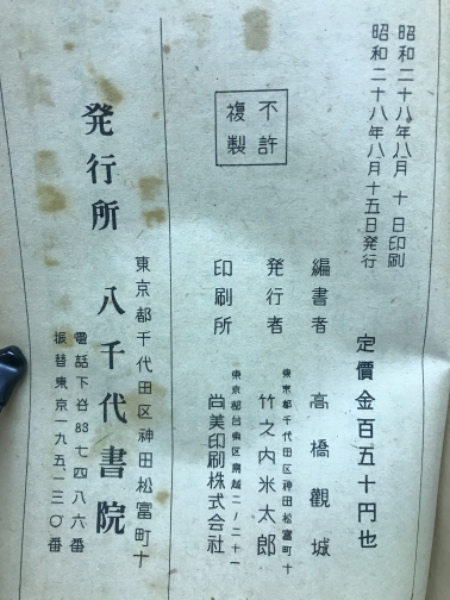 昭和二十八年八月十日印刷
昭和二十八年八月十五日発行
定價金百五十円也
不許
複製
編書者 高橋觀城
東京都千代田区神田松富町十
発行者 竹之内米太郎
東京都台東区南越二ノ二十一
印刷所 尚美印刷株式会社
東京都千代田区神田松富町十
発行所 八千代書院
電話下谷83七四八六番
振替東京一九五一三〇番